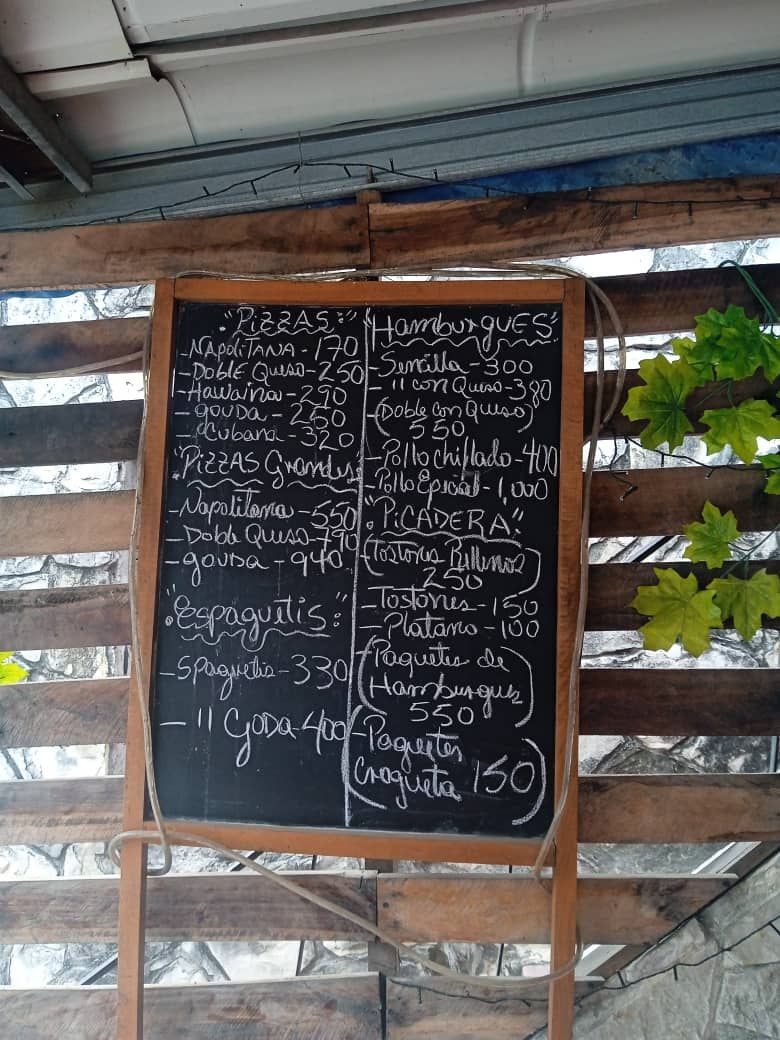 "PiZZAS"
-NAPOLiTANA-170
-DOBLE QUESO-250
-Hawaina-290
-gouDA-260
-Cubana-320
"PiZZAS Grandes
-Napolitana-550
-Doble Queso-790
-gouDA-940
"Espaguetis"
-Spaguetis-330
-11 GODA-400
"HamburguES"
-Sencilla-300
-11 con Queso-380
-(Doble con Queso)
550
-Pollo chiflado-400
-Pollo 1,000
"PiCADERA"
(Tostones Rellenos)
250
-Tostones-150
-Platano-100
(Paquetes de
Hamburgues)
550
(-Paquetes
Croqueta 150)